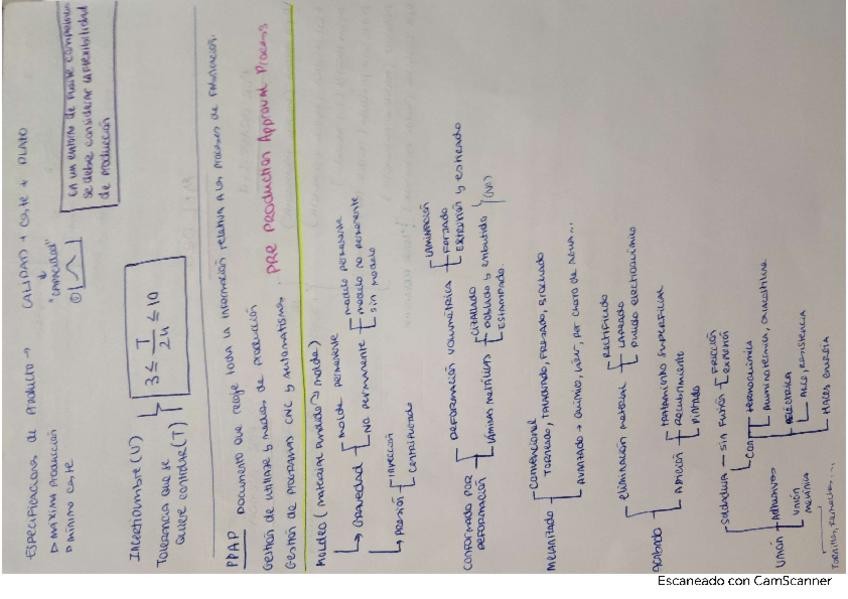 ESPECIFICACIONES DE PRODUCTO → CALIDAD + COSTE + PLAZO
▷ MÁXIMA PRODUCCIÓN
▷ MÍNIMO COSTE
"CAPACIDAD"
En un entorno de fuerte
se debe considerar la flexibilidad
de producción
INCERTIDUMBRE (U)
TOLERANCIA que se
quiere considerar (T)
3 ≤ T/2U ≤ 10
PPAP DOCUMENTO que recoge toda la información relativa a los procesos de fabricación.
Gestión de utillaje y medios de producción
Gestión de programas CNC y automatismos. PRE PRODUCTION Approval Process
Moldeo (material fundido → molde)
GRAVEDAD
Molde permanente
No permanente
modelo permanente
modelo no permanente
sin modelo
PRESIÓN
INYECCIÓN
CENTRIFUGADO
CONFORMADO POR DEFORMACIÓN
DEFORMACIÓN VOLUMÉTRICA
LAMINACIÓN
FORJADO
EXTRUSIÓN y estirado
LÁMINAS METÁLICAS
CIZALLADO
Doblado y embutido
ESTAMPADO
MECANIZADO
CONVENCIONAL
TORNEADO, TALADRADO, FRESADO, BROCHADO
AVANZADO → QUÍMICO, LÁSER, POR CHORRO DE AGUA...
ACABADO
Eliminación material
Rectificado
Lapeado
Pulido electroquímico
ADICIÓN
TRATAMIENTO SUPERFICIAL
RECUBRIMIENTO
PINTADO
UNIÓN
Soldadura
SIN FUSIÓN
FRICCIÓN
CON
TERMOQUÍMICA
Aluminotermia, oxiacetilénica
ELÉCTRICA
ARCO, RESISTENCIA
HACES ENERGÍA
Adhesivos
UNIÓN MECÁNICA
TORNILLOS, REMACHES...
Escaneado con CamScanner